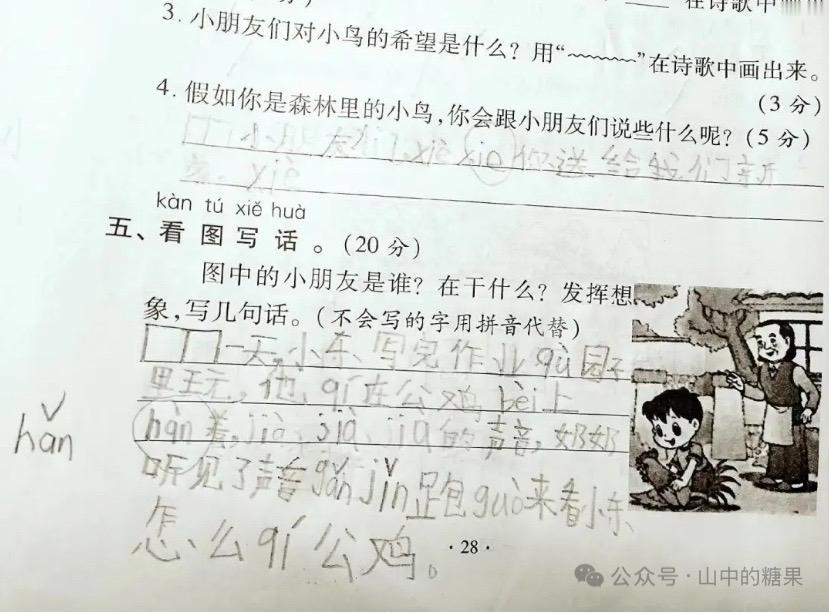 在诗歌中
3. 小朋友们对小鸟的希望是什么？用“﹏﹏﹏”在诗歌中画出来。
(3 分)
4. 假如你是森林里的小鸟，你会跟小朋友们说些什么呢？(5 分)
小朋友们，xiè xie 你送给我们新
xiè
kàn tú xiě huà
五、看图写话。(20 分)
图中的小朋友是谁？在干什么？发挥想
象，写几句话。(不会写的字用拼音代替)
一天，小东写完作业 qù 园子
里玩，他 qí 在公鸡 bèi 上
hǎn
hàn 着，jià、jià、jià 的声音，奶奶
听见了声音 gǎn jǐn 跑 guò 来看小东
怎么 qí 公鸡。
· 28 ·
公众号 · 山中的糖果